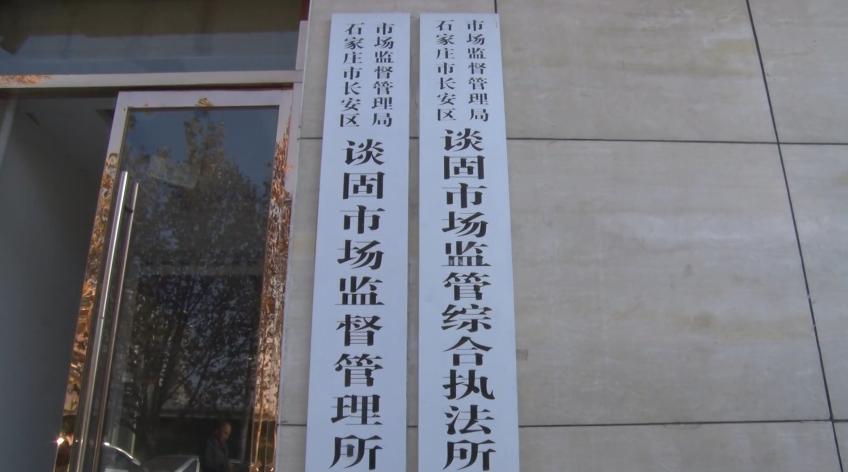 石家庄市长安区
市场监督管理局
谈固市场监督管理所
石家庄市长安区
市场监督管理局
谈固市场监管综合执法所